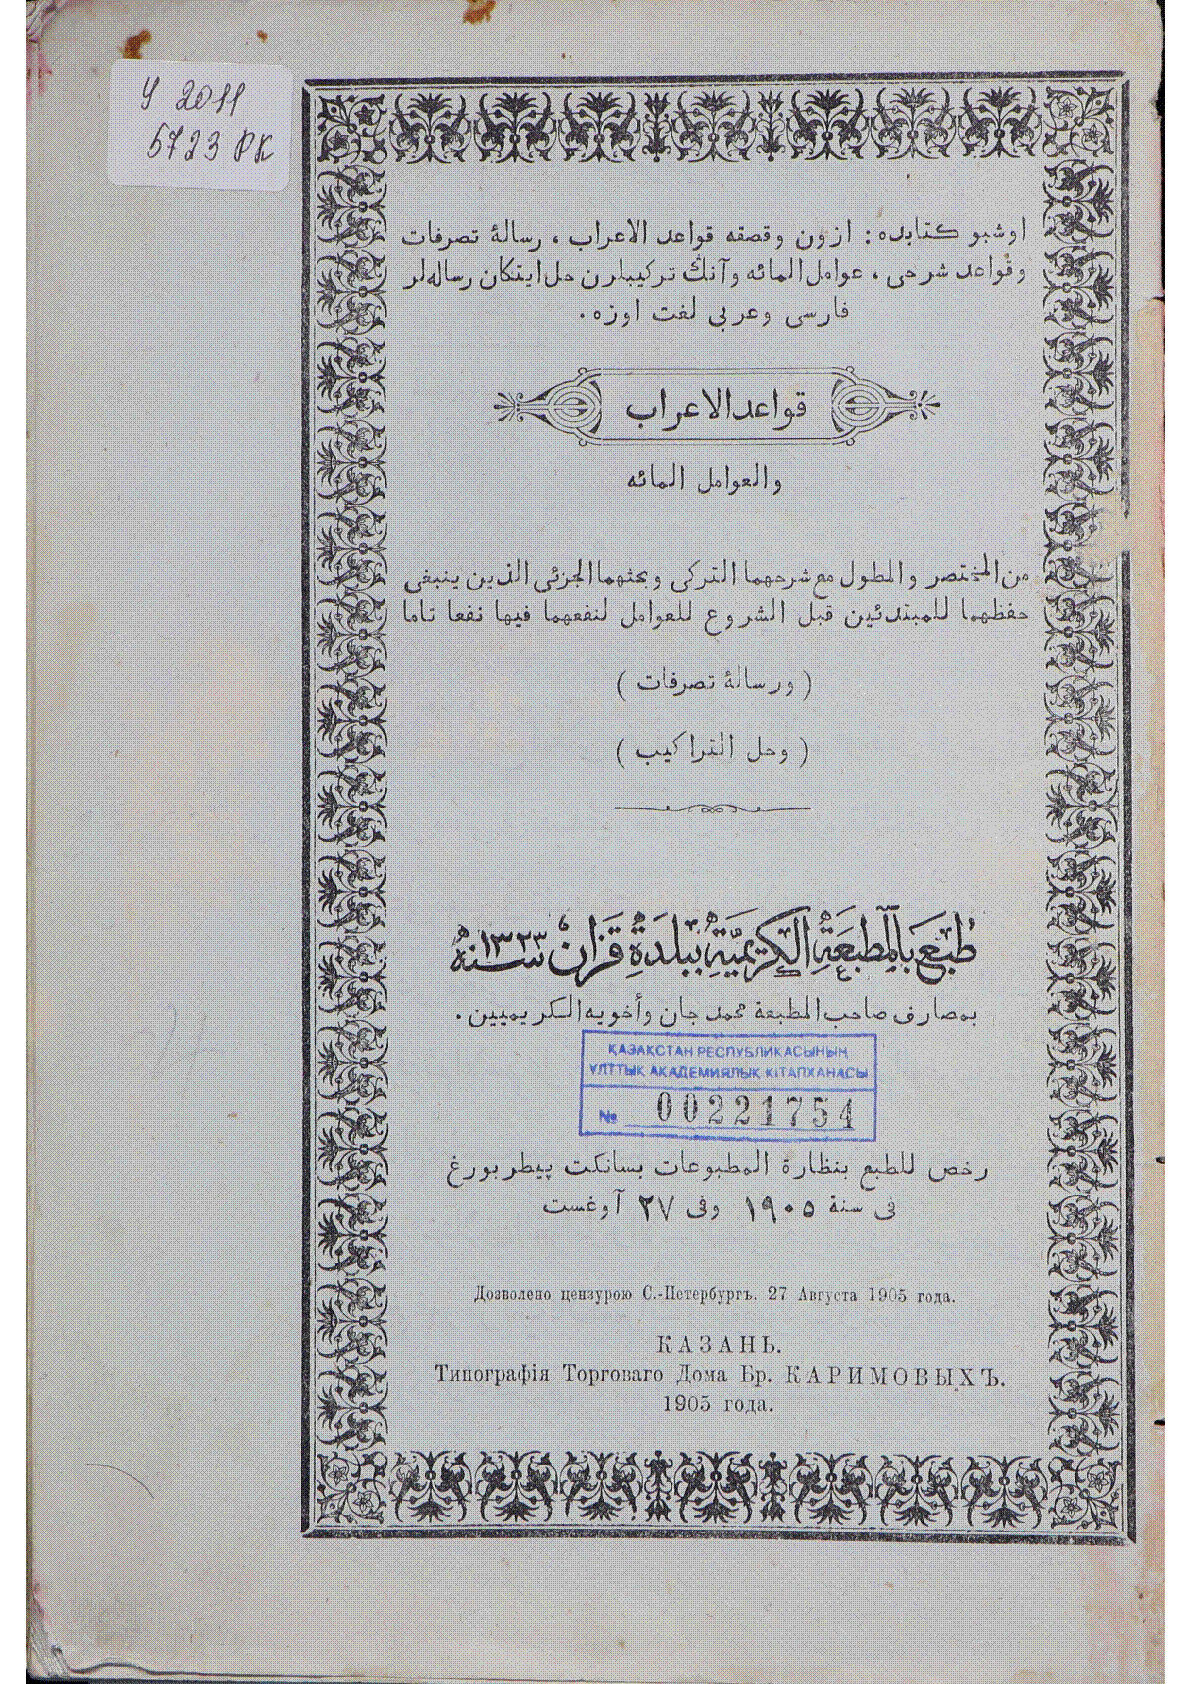 У 2011
5723 РК
اوشبو كتابده: ازون وقصقه قواعد الاعراب ، رسالۀ تصرفات
وقواعد شرحى ، عوامل المائه وآنڭ تركيبلرن حل ايتكان رساله‌لر
فارسى وعربى لغت اوزه .
قواعد الاعراب
والعوامل المائه
من المختصر والمطول مع شرحهما التركى وبحثهما الجزئى الذين ينبغى
حفظهما للمبتدئين قبل الشروع للعوامل لنفعهما فيها نفعا تاما
( ورسالۀ تصرفات )
( وحل التراكيب )
طُبِعَ بِالْمَطْبَعَةِ الْكَرِيمِيَّةِ بِبَلْدَةِ قَزَانْ سنه ١٣٢٣
بمصارف صاحب المطبعة محمد جان وأخويه الكريميين .
ҚАЗАҚСТАН РЕСПУБЛИКАСЫНЫҢ
ҰЛТТЫҚ АКАДЕМИЯЛЫҚ КІТАПХАНАСЫ
№ 00221754
رخص للطبع بنظارة المطبوعات بسانكت پيطربورغ
فى سنة ١٩٠٥ وفى ٢٧ آوغست
Дозволено цензурою С.-Петербургъ. 27 Августа 1905 года.
КАЗАНЬ.
Типографія Торговаго Дома Бр. КАРИМОВЫХЪ.
1905 года.